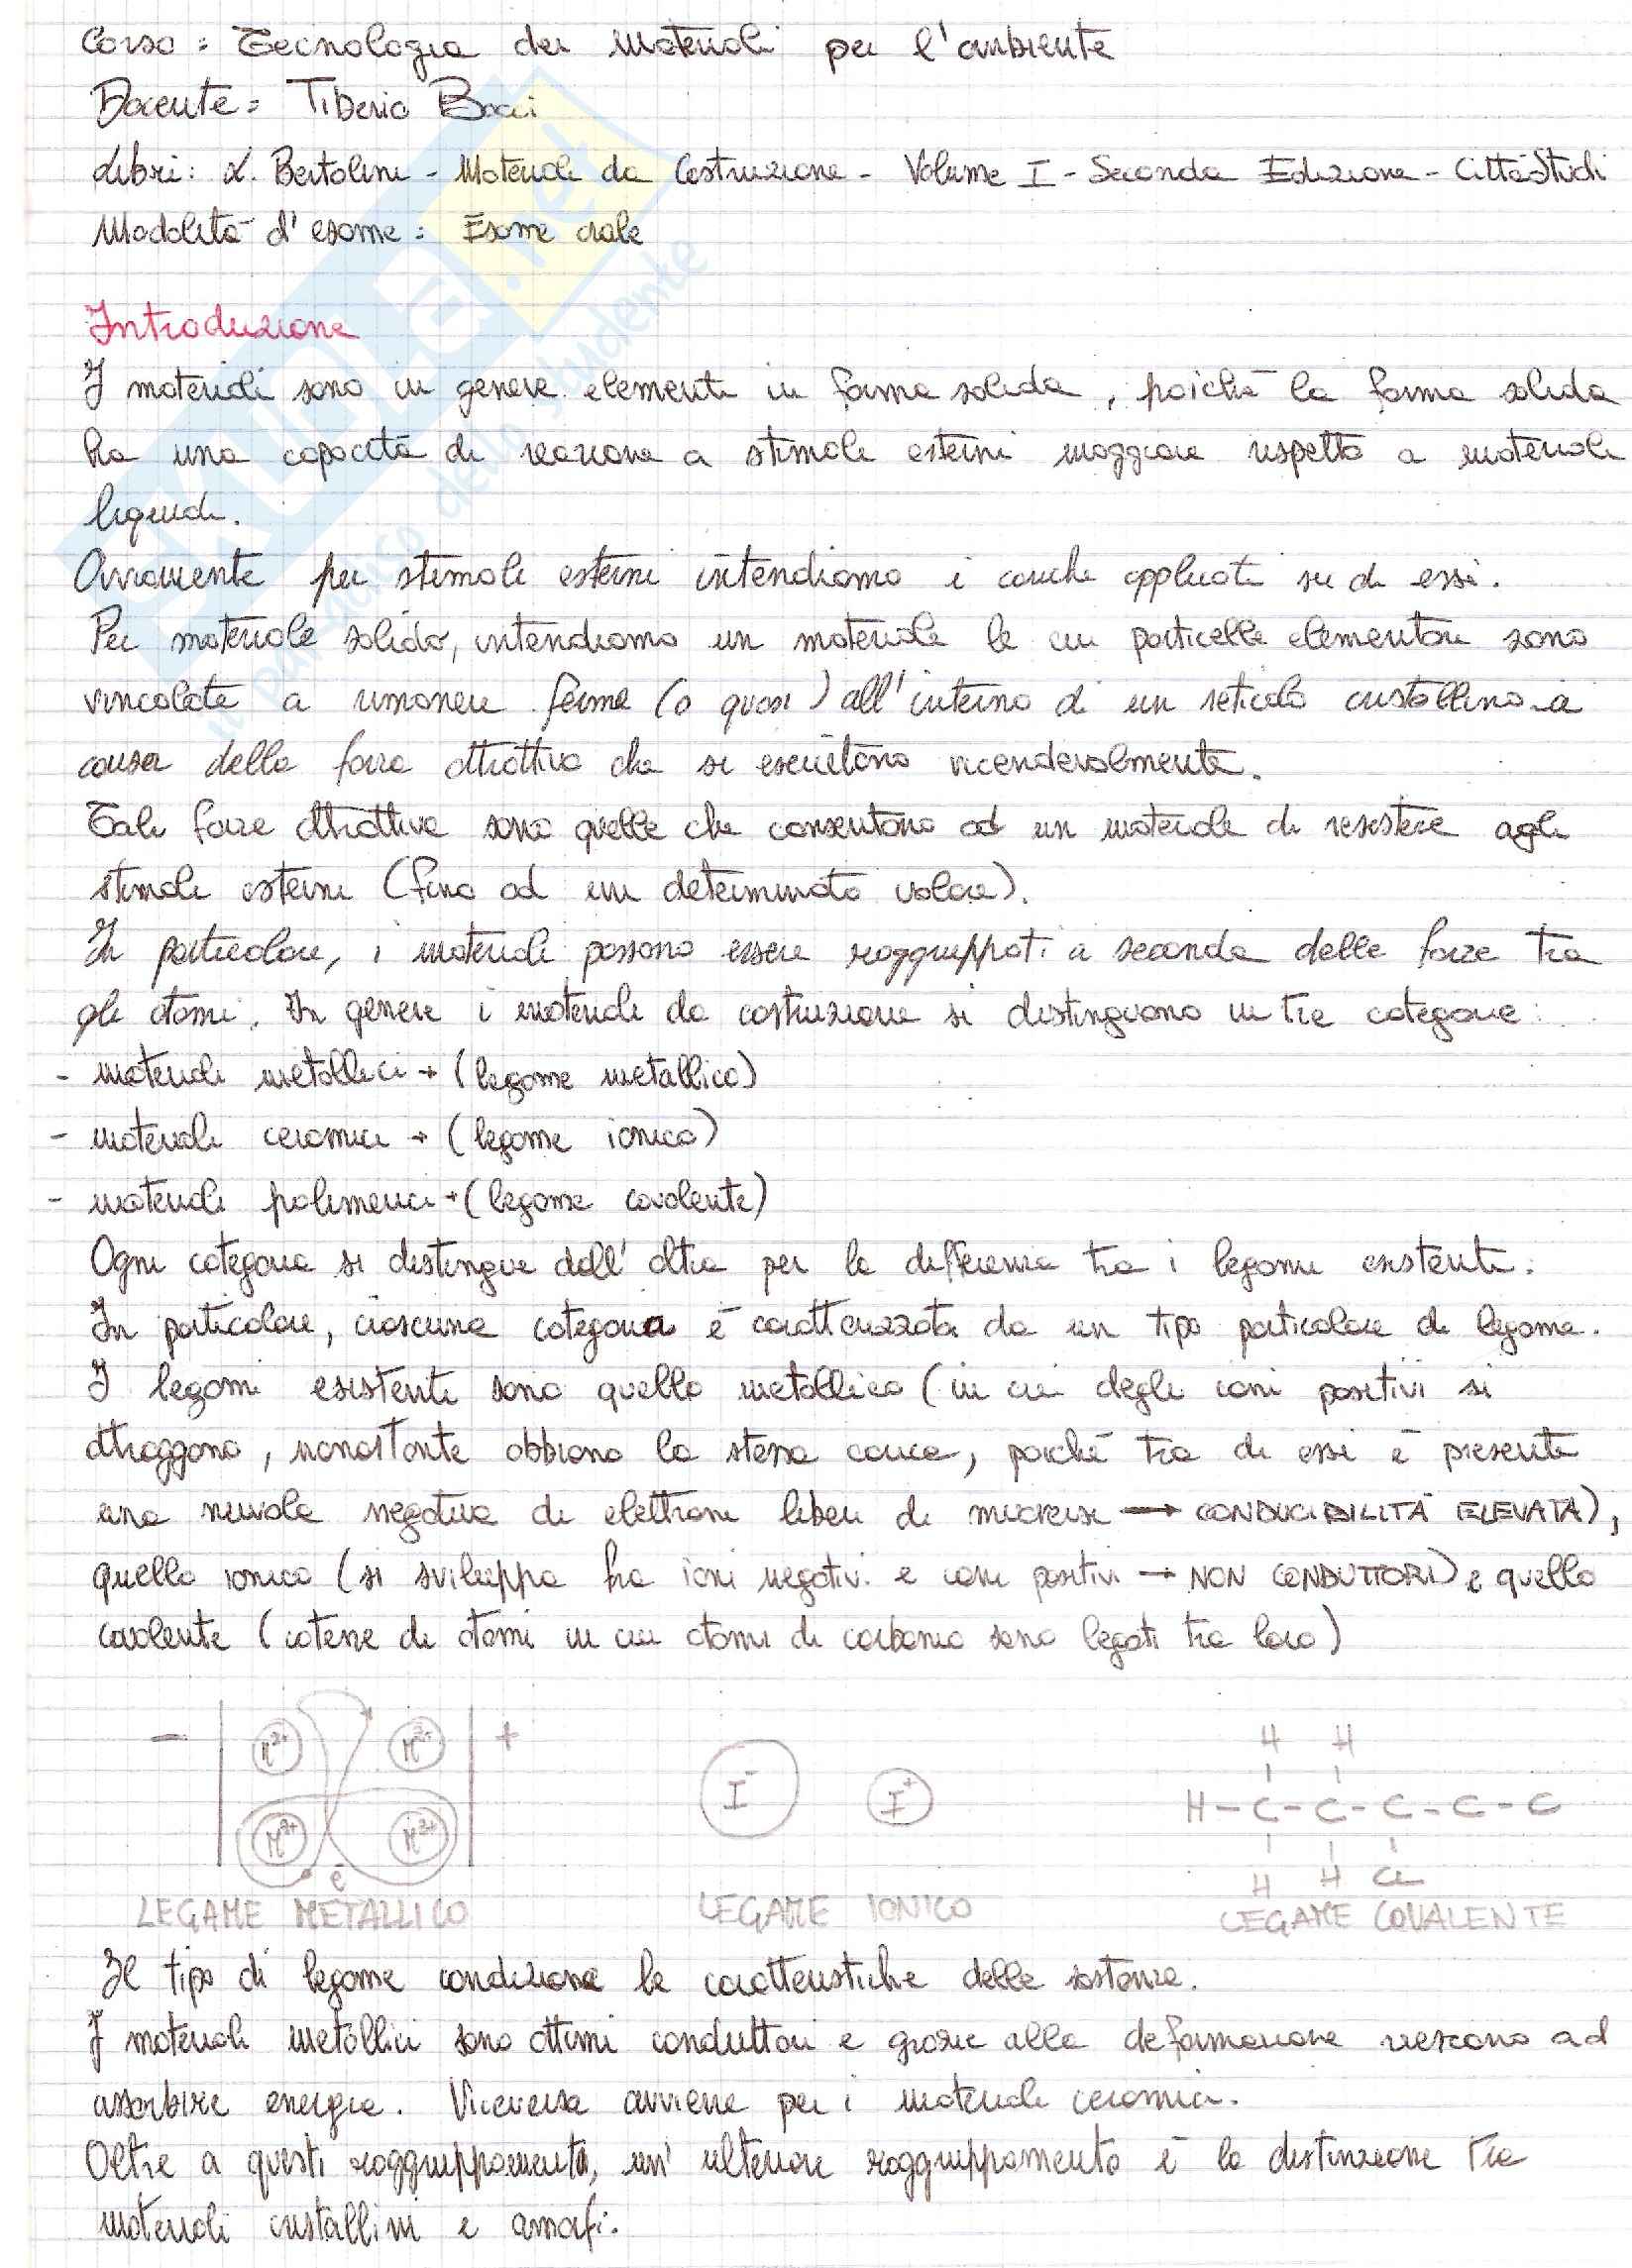 Corso: Tecnologia dei Materiali per l'ambiente
Docente: Tiberio Bocci
Libri: L. Bertolini - Materiali da Costruzione - Volume I - Seconda Edizione - CittàStudi
Modalità d'esame: Esame orale
Introduzione
I materiali sono in genere elementi in forma solida, poichè la forma solida
ha una capacità di reazione a stimoli esterni maggiore rispetto a materiali
liquidi.
Ovviamente per stimoli esterni intendiamo i carichi applicati su di essi.
Per materiale solido, intendiamo un materiale le cui particelle elementari sono
vincolate a rimanere ferme (o quasi) all'interno di un reticolo cristallino a
causa delle forze attrattive che si esercitano vicendevolmente.
Tali forze attrattive sono quelle che consentono ad un materiale di resistere agli
stimoli esterni (fino ad un determinato valore).
In particolare, i materiali possono essere raggruppati a seconda delle forze tra
gli atomi. In genere i materiali da costruzione si distinguono in tre categorie:
- materiali metallici → (legame metallico)
- materiali ceramici → (legame ionico)
- materiali polimerici → (legame covalente)
Ogni categoria si distingue dall'altra per la differenza tra i legami esistenti.
In particolare, ciascuna categoria è caratterizzata da un tipo particolare di legame.
I legami esistenti sono quello metallico (in cui degli ioni positivi si
attraggono, nonostante abbiano la stessa carica, poichè tra di essi è presente
una nuvola negativa di elettroni liberi di muoversi → CONDUCIBILITÀ ELEVATA),
quello ionico (si sviluppa tra ioni negativi e ioni positivi → NON CONDUTTORI) e quello
covalente (catene di atomi in cui atomi di carbonio sono legati tra loro)
- M²⁺ M²⁺ + I⁻ I⁺ H H
H-C-C-C-C-C
M²⁺ M²⁺ e⁻ H H Cl
LEGAME METALLICO LEGAME IONICO LEGAME COVALENTE
Il tipo di legame condiziona le caratteristiche delle sostanze.
I materiali metallici sono ottimi conduttori e grazie alla deformazione riescono ad
assorbire energia. Viceversa avviene per i materiali ceramici.
Oltre a questi raggruppamenti, un' ulteriore raggruppamento è la distinzione tra
materiali cristallini e amorfi.